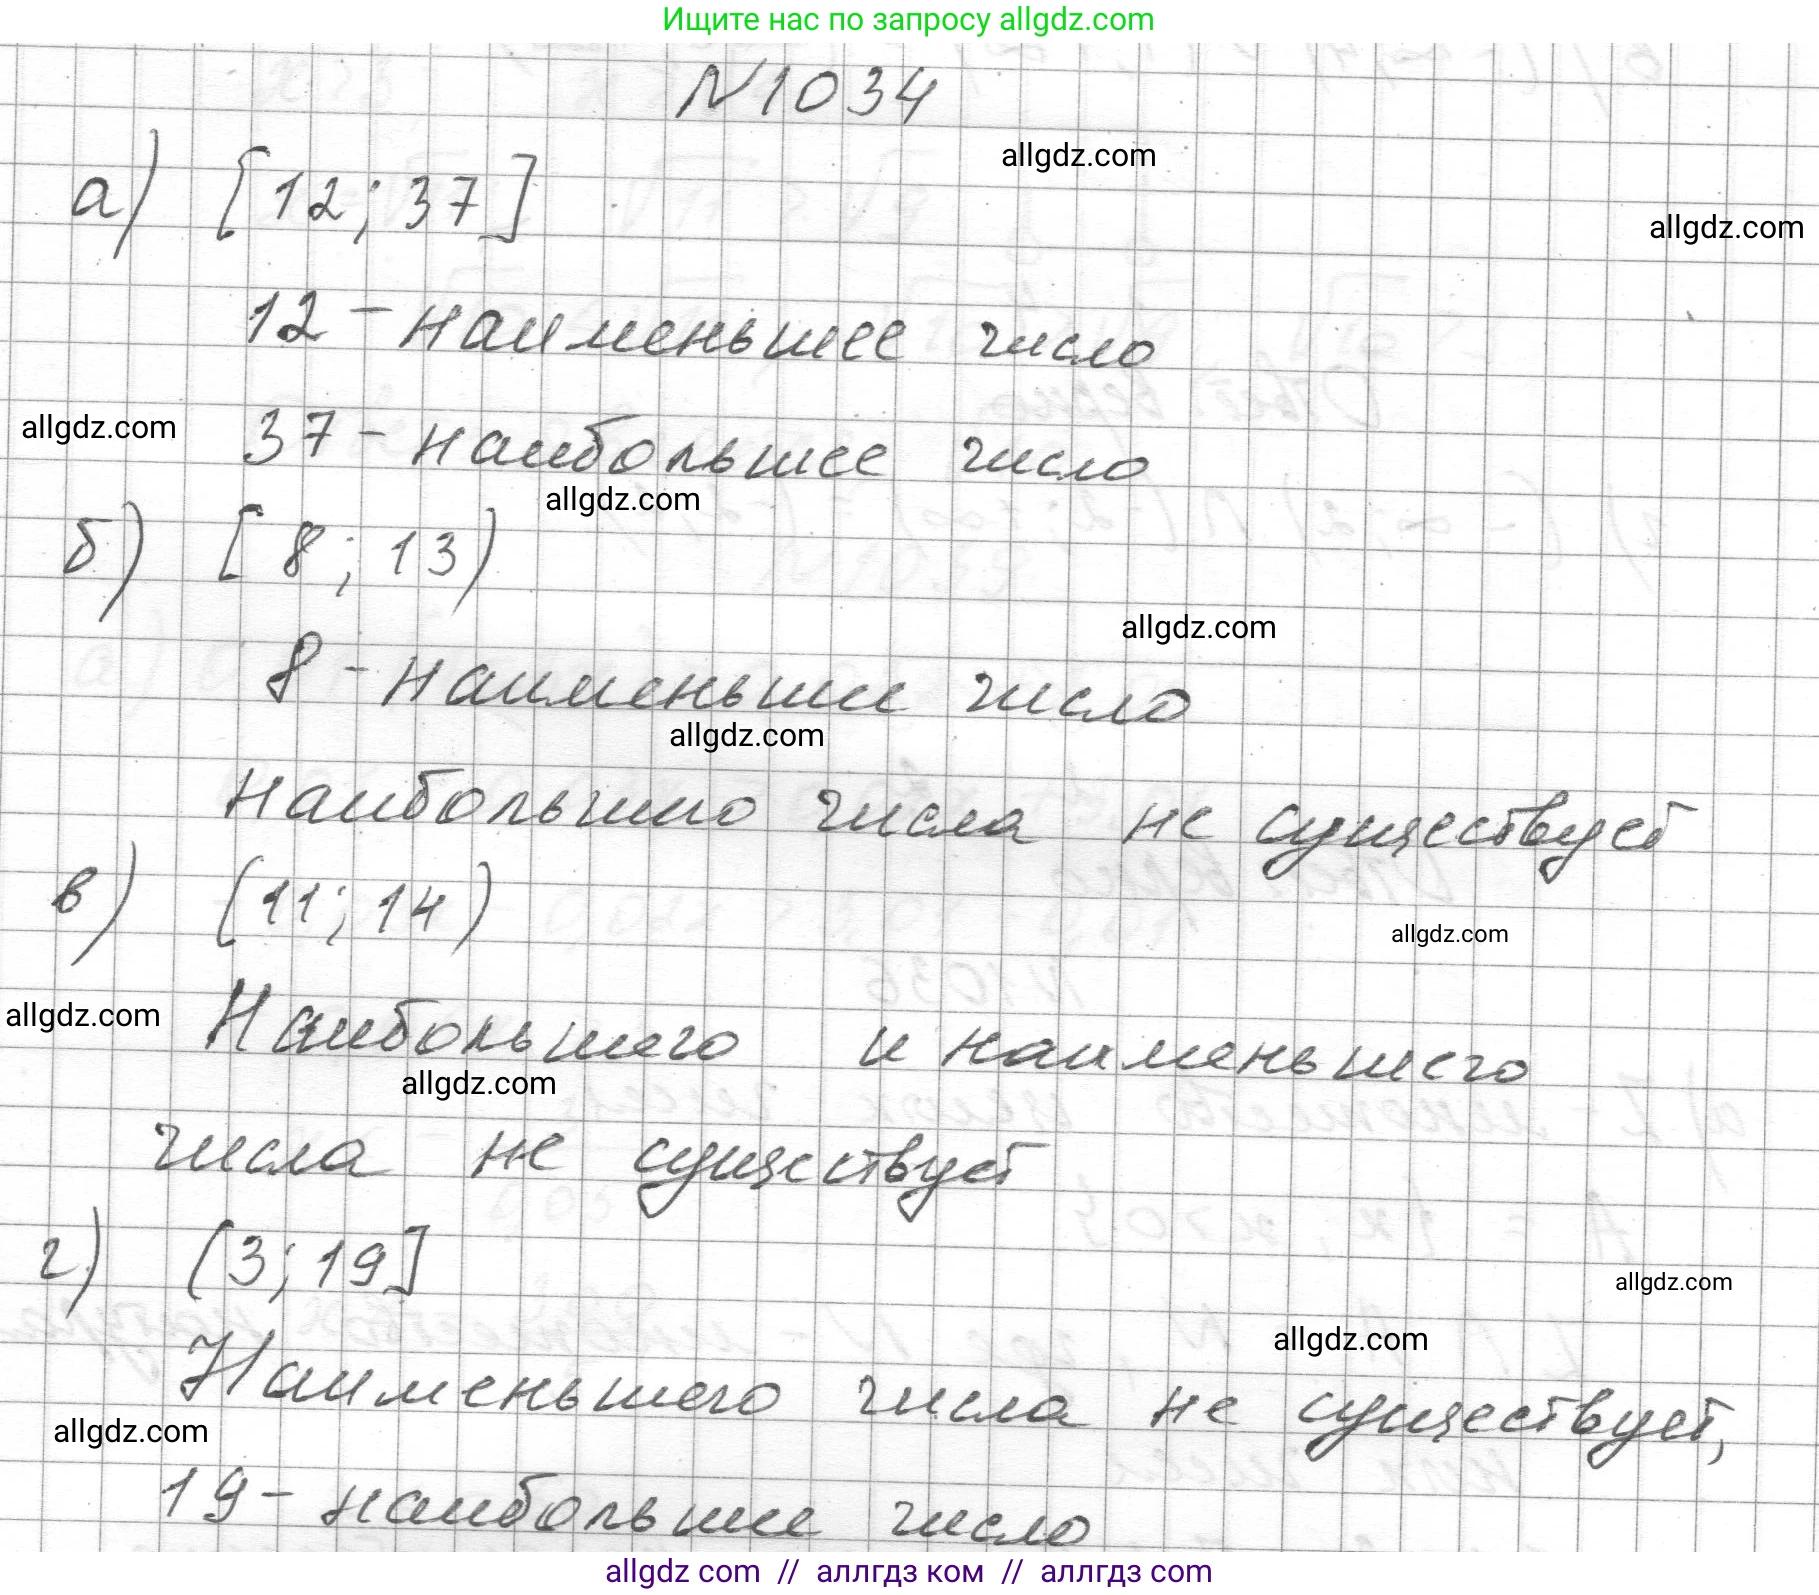 Ищите нас по запросу allgdz.com
N1034
allgdz.com
а) [12; 37]
allgdz.com
12 - наименьшее число
allgdz.com
37 - наибольшее число
allgdz.com
б) [8; 13)
allgdz.com
8 - наименьшее число
allgdz.com
Наибольшего числа не существует
в) (11; 14)
allgdz.com
allgdz.com
Наибольшего и наименьшего
allgdz.com
числа не существует
г) (3; 19]
allgdz.com
allgdz.com
Наименьшего числа не существует,
allgdz.com
19 - наибольшее число
allgdz.com // аллгдз ком // аллгдз com